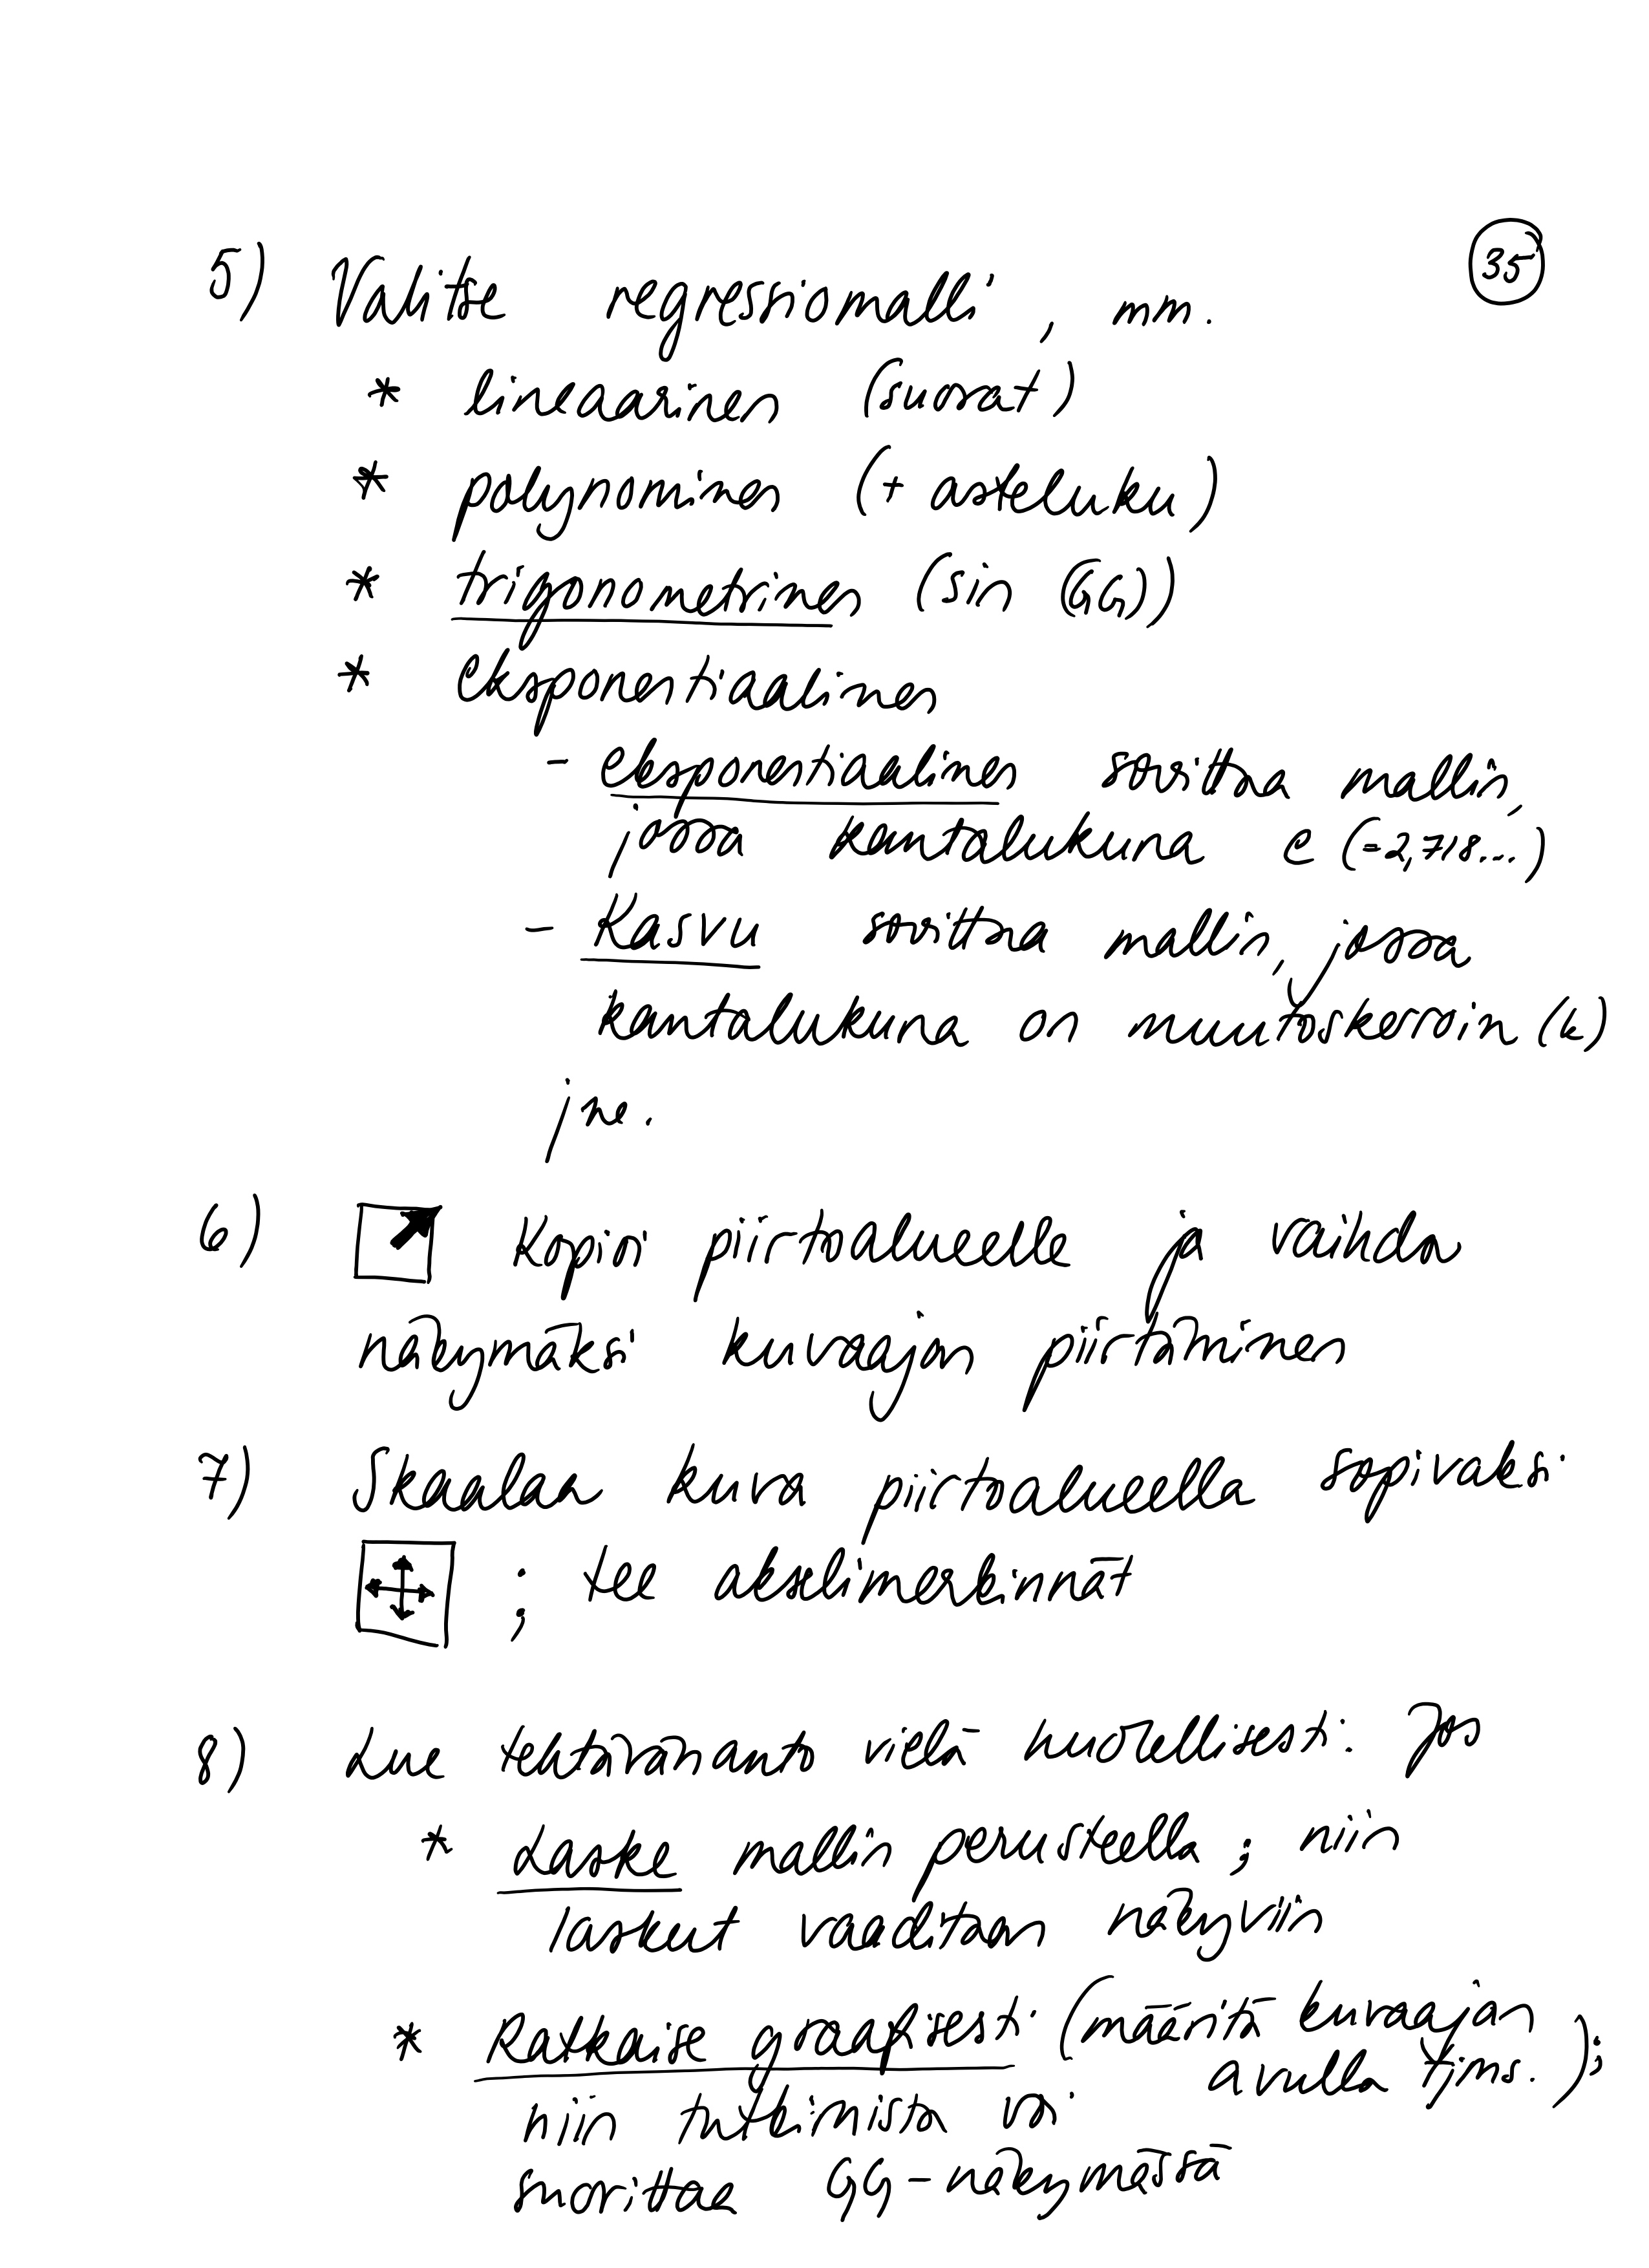 35
5) Valitse regressiomalli, mm.
* lineaarinen (suorat)
* polynominen (+ asteluku)
* trigonometrinen (sin (GG))
* eksponentiaalinen
- eksponentiaalinen sovittaa mallin,
jossa kantalukuna e (=2,718...)
- Kasvu sovittaa mallin, jossa
kantalukuna on muutoskerroin (k)
jne.
6) Kopioi piirtoalueelle ja vaihda
näkymäksi kuvaajan piirtäminen
7) Skaalaa kuva piirtoalueella sopivaksi
; tee akselimerkinnät
8) Lue tehtävänanto vielä huolellisesti. Jos
* Laske mallin perusteella ; niin
laskut vaaditaan näkyviin
* Ratkaise graafisesti (määritä kuvaajan
avulla tjms.);
niin tutkimista voi
suorittaa GG-näkymässä